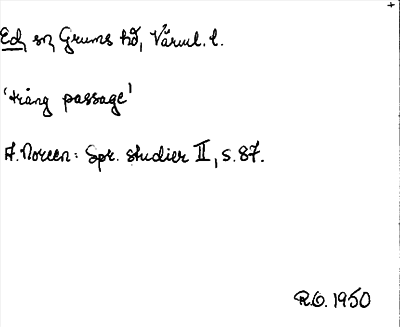 Ed, sn, Grums hd, Värml. l.
'trång passage'
A. Noreen: Spr. studier II, s. 87.
R.O. 1950